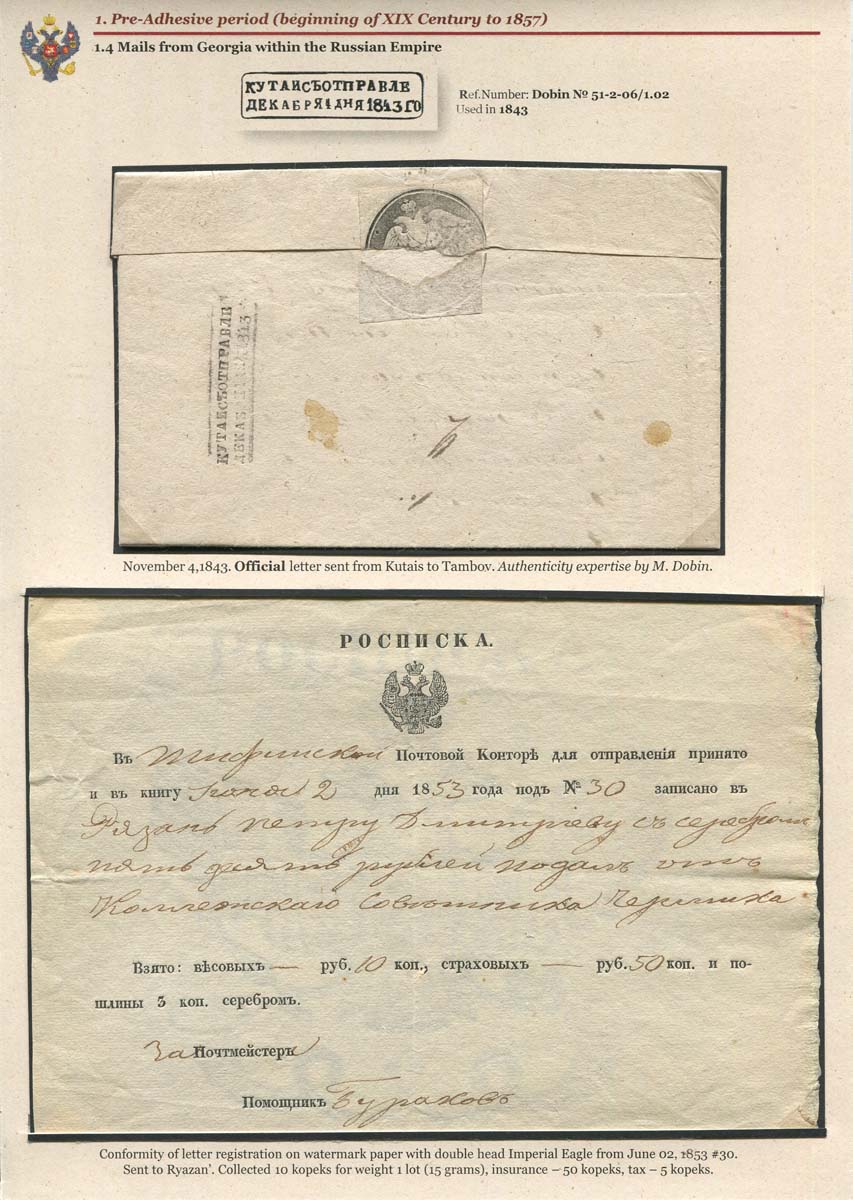 1. Pre-Adhesive period (beginning of XIX Century to 1857)
1.4 Mails from Georgia within the Russian Empire
КУТАИСЪОТПРАВЛЕ
ДЕКАБРЯ4ДНЯ1843ГО
Ref.Number: Dobin № 51-2-06/1.02
Used in 1843
КУТАИСЪОТПРАВЛЕ
November 4,1843. Official letter sent from Kutais to Tambov. Authenticity expertise by M. Dobin.
РОСПИСКА.
Въ Тифлиской Почтовой Конторѣ для отправленія принято
и въ книгу 2 дня 1853 года подъ № 30 записано въ
Рязань Петру Дмитріеву съ серебромъ
пять десятъ рублей подалъ отъ
Коллежскаго Совѣтника
Взято: вѣсовыхъ — руб. 10 коп., страховыхъ — руб. 50 коп. и по-
шлины 3 коп. серебромъ.
За Почтмейстеръ
Помощникъ Бураковъ
Conformity of letter registration on watermark paper with double head Imperial Eagle from June 02, 1853 #30.
Sent to Ryazan'. Collected 10 kopeks for weight 1 lot (15 grams), insurance – 50 kopeks, tax – 5 kopeks.